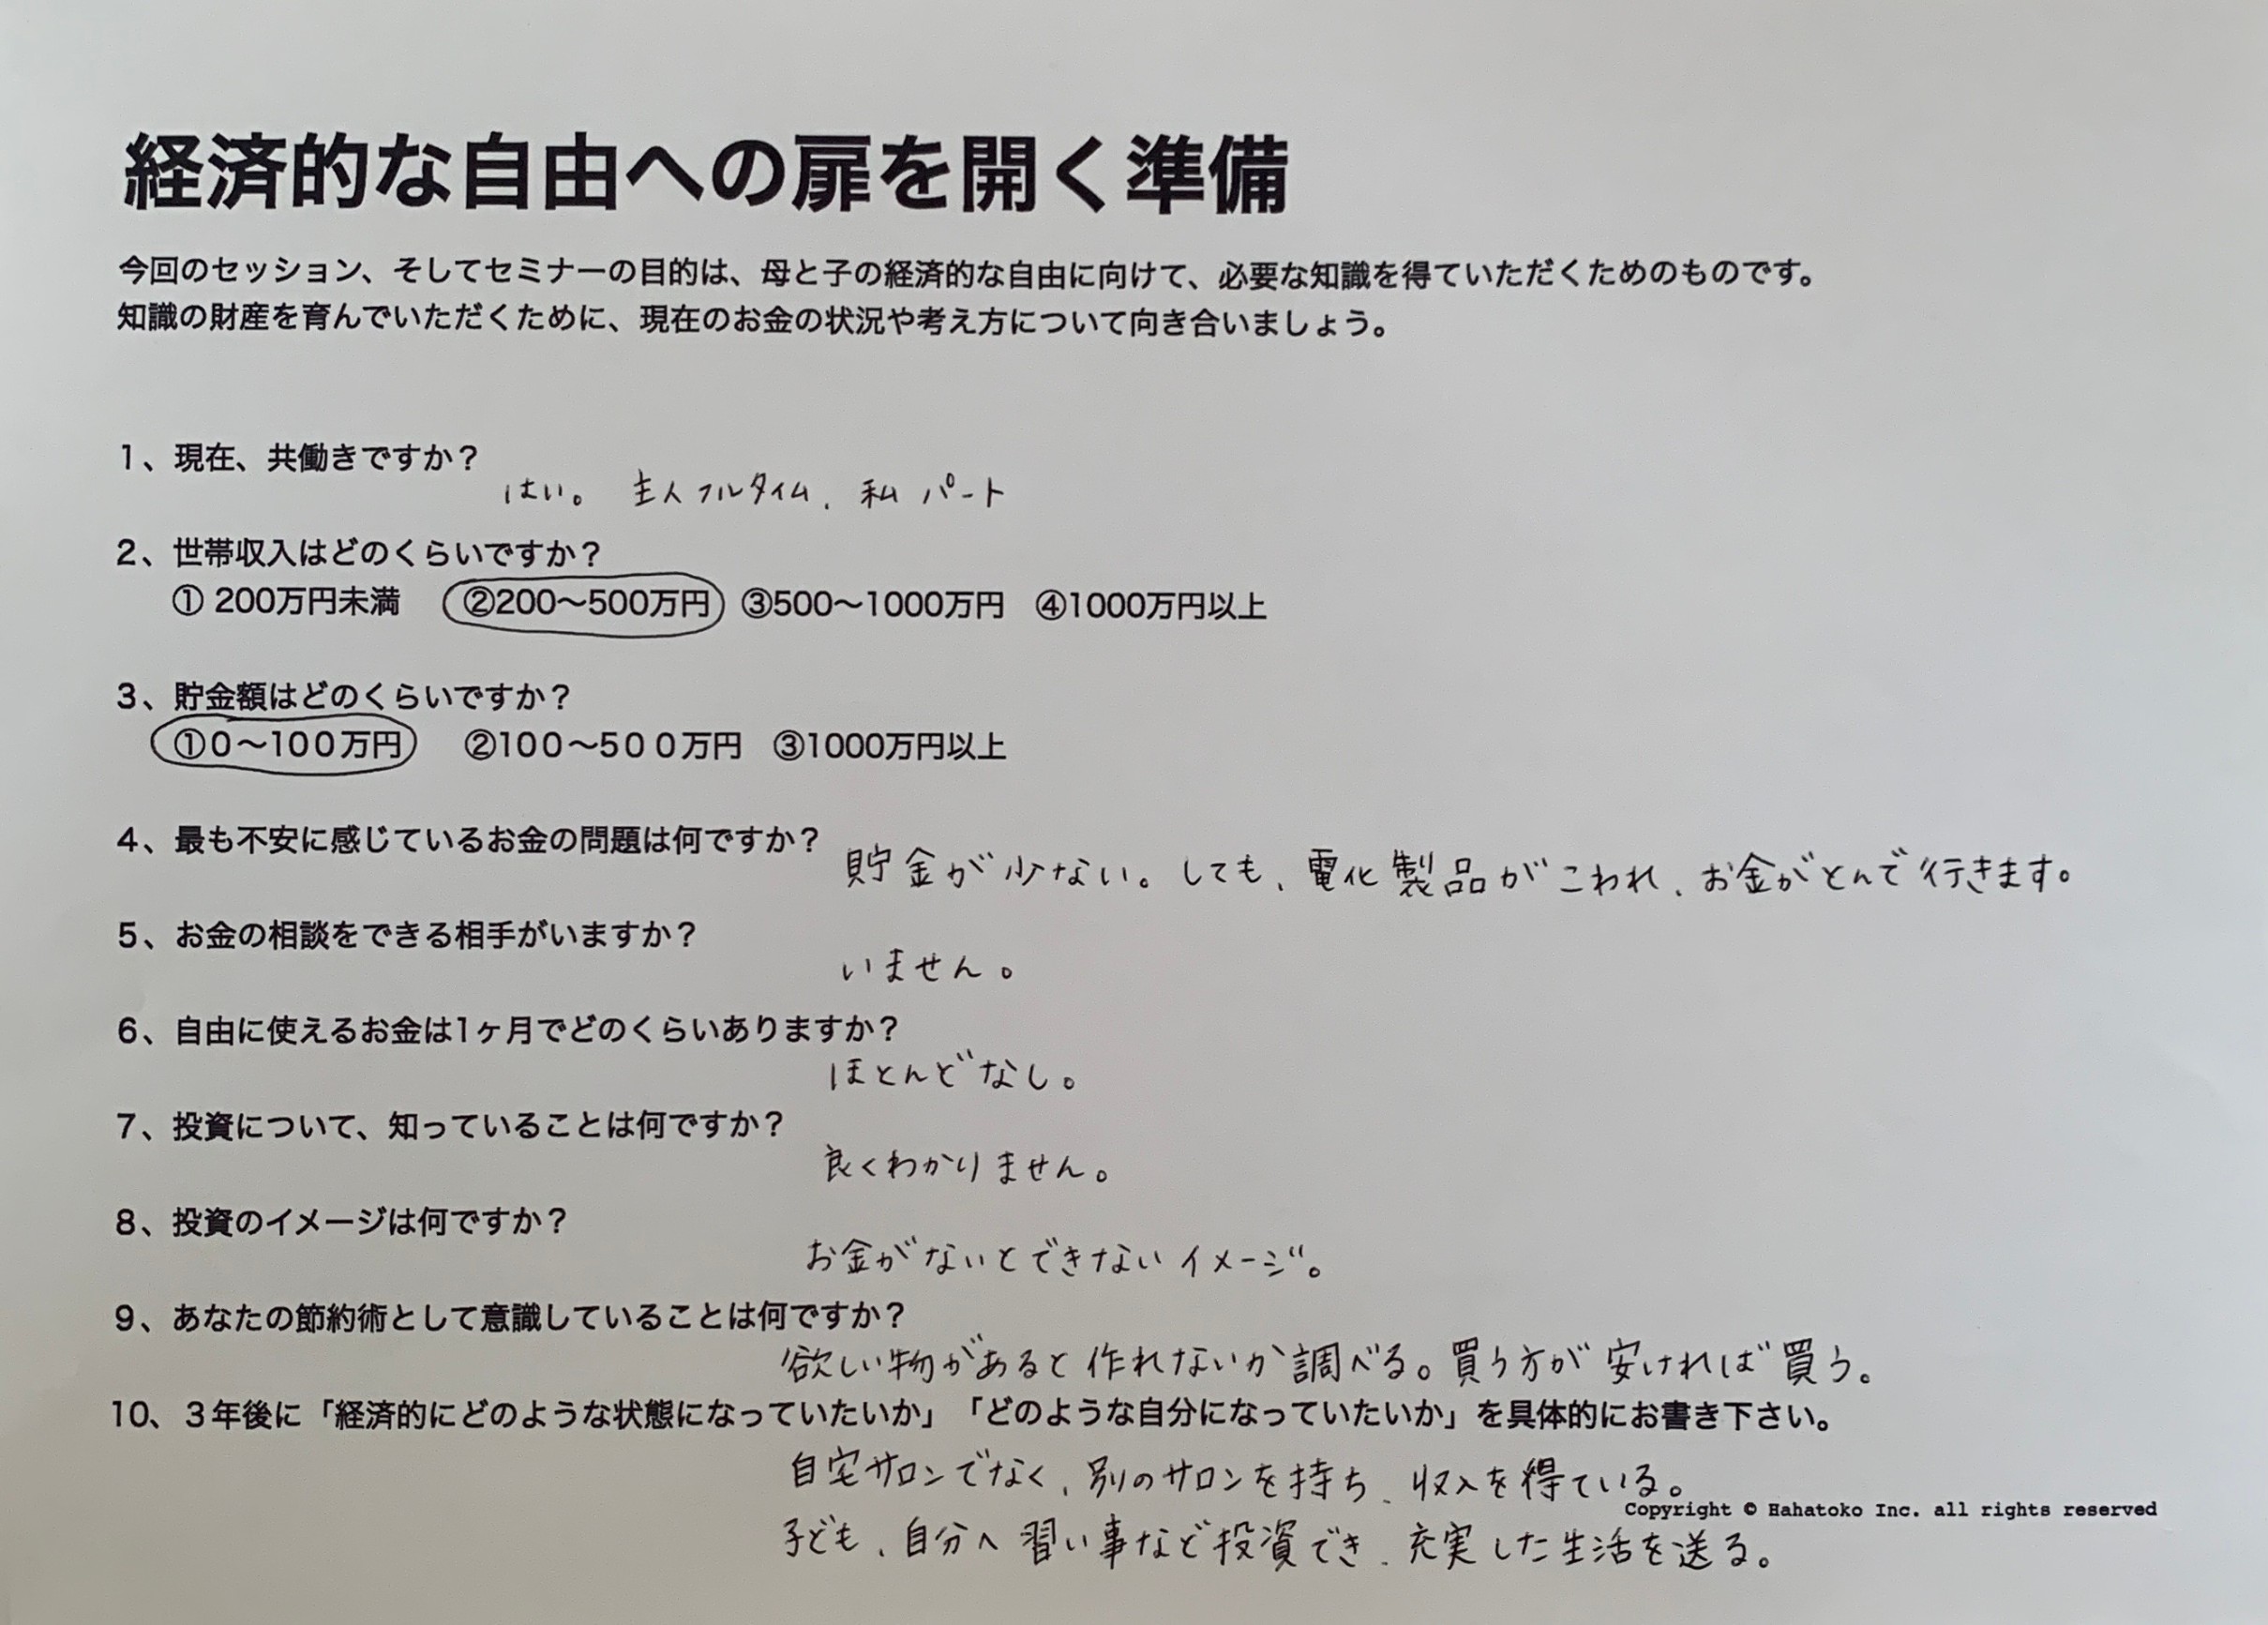 経済的な自由への扉を開く準備
今回のセッション、そしてセミナーの目的は、母と子の経済的な自由に向けて、必要な知識を得ていただくためのものです。
知識の財産を育んでいただくために、現在のお金の状況や考え方について向き合いましょう。
1、現在、共働きですか？
はい。 主人フルタイム、私 パート
2、世帯収入はどのくらいですか？
① 200万円未満 ②200〜500万円 ③500〜1000万円 ④1000万円以上
3、貯金額はどのくらいですか？
①0〜100万円 ②100〜500万円 ③1000万円以上
4、最も不安に感じているお金の問題は何ですか？
貯金が少ない。しても、電化製品がこわれ、お金がとんで行きます。
5、お金の相談をできる相手がいますか？
いません。
6、自由に使えるお金は1ヶ月でどのくらいありますか？
ほとんどなし。
7、投資について、知っていることは何ですか？
良くわかりません。
8、投資のイメージは何ですか？
お金がないとできないイメージ。
9、あなたの節約術として意識していることは何ですか？
欲しい物があると作れないか調べる。買う方が安ければ買う。
10、３年後に「経済的にどのような状態になっていたいか」「どのような自分になっていたいか」を具体的にお書き下さい。
自宅サロンでなく、別のサロンを持ち、収入を得ている。
Copyright © Hahatoko Inc. all rights reserved
子ども、自分へ習い事など投資でき、充実した生活を送る。